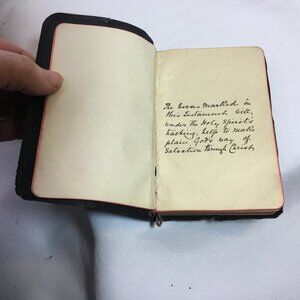 The verses marked in
this Testament will,
under the Holy Spirit's
teaching, help to make
plain God's way of
Salvation through Christ.